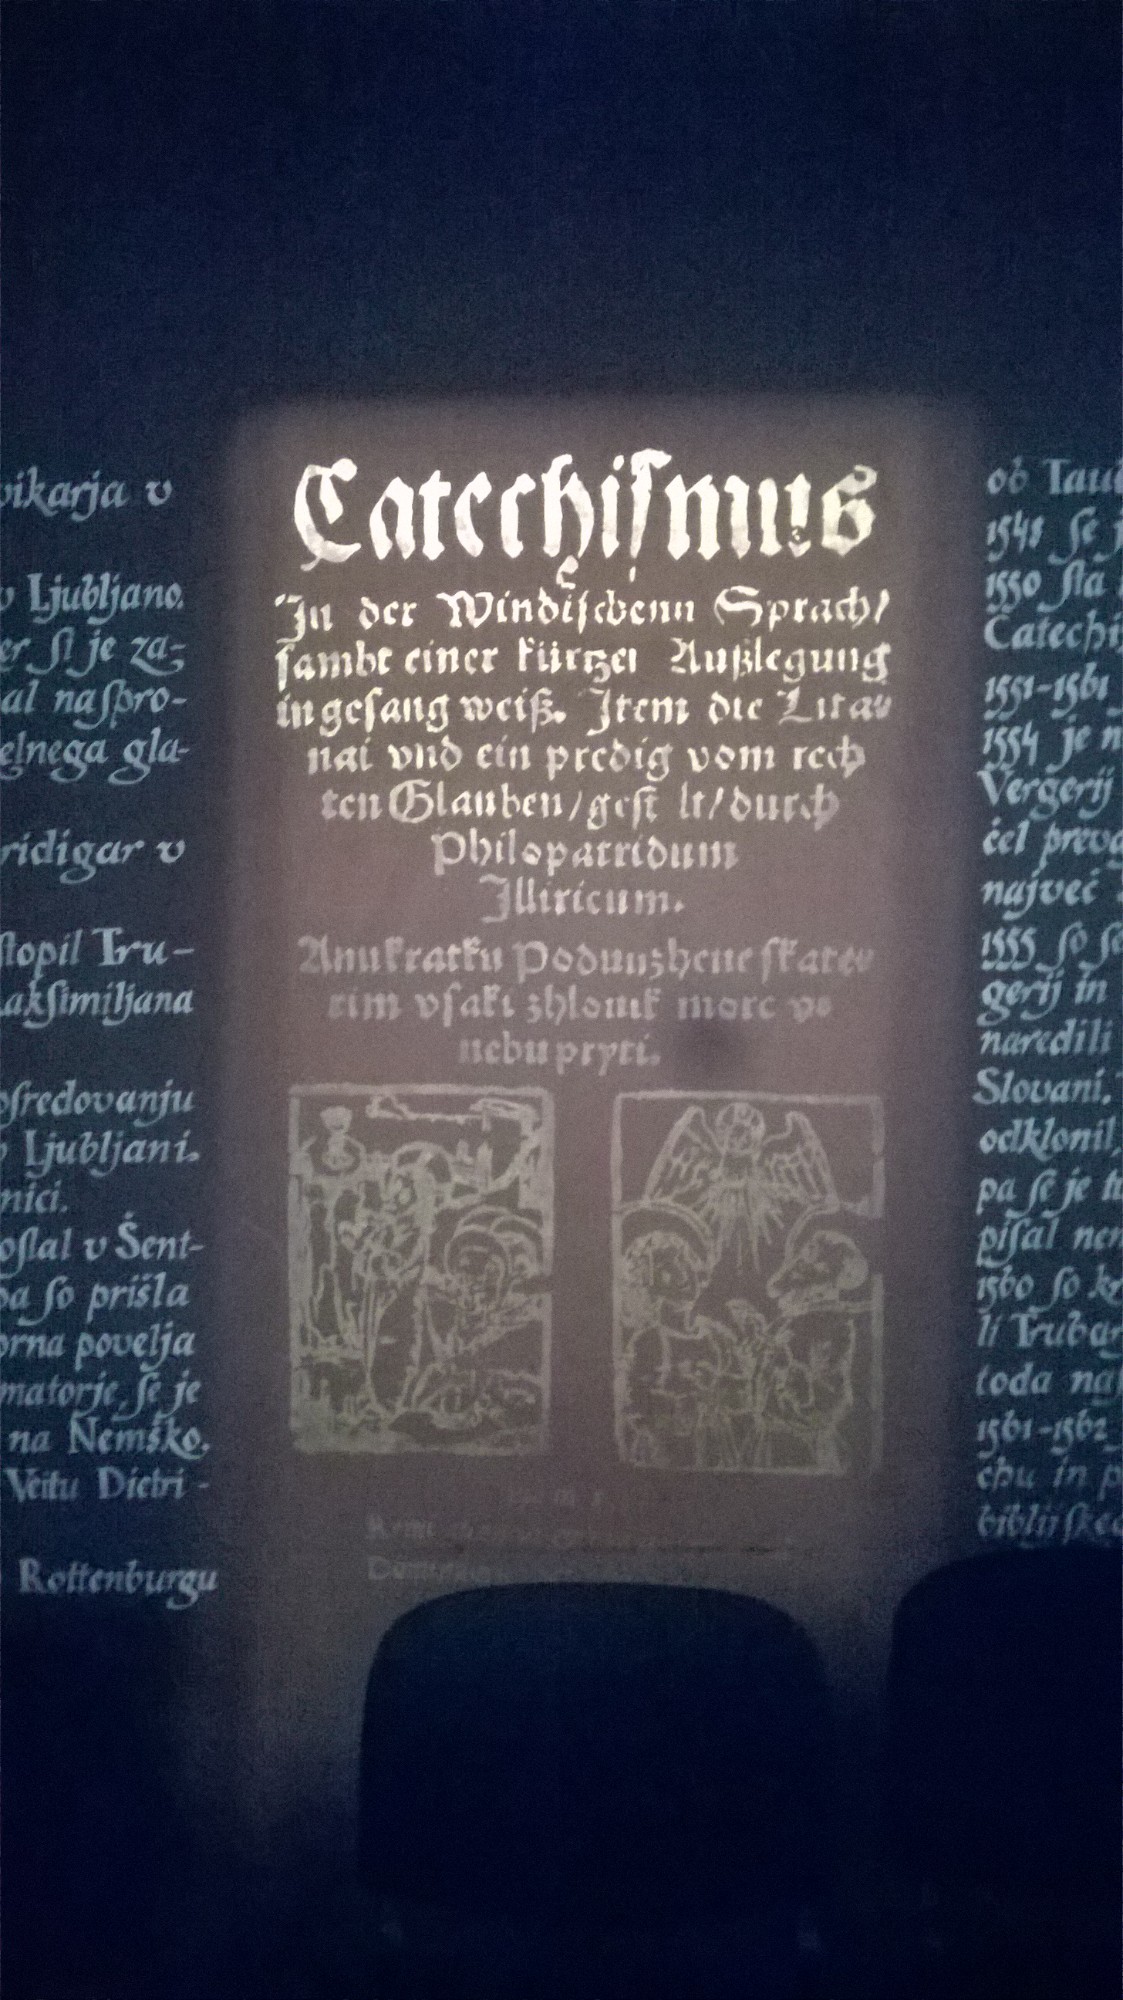 vikarja v
v Ljubljano.
er si je za-
al naspro-
elnega gla-
ridigar v
stopil Tru-
aksimiljana
osredovanju
o Ljubljani.
nici.
oslal v Šent-
pa so prišla
orna povelja
matorje, se je
na Nemško.
Veitu Dietri-
Rottenburgu
Catechiſmus
In der Windiſchenn Sprach/
ſambt einer kürtzei Außlegung
in geſang weiß. Item die Litau
nai vnd ein predig vom rech
ten Glauben/geſt lt/durch
Philopatridum
Illiricum.
Anu kratku Poduuzhene ſkateo
rim vſaki zhlouik more vo
nebu pryti.
ob Tau
1548 se j
1550 sta
Catechis
1551-1561
1554 je n
Vergerij
čel prevo
največ
1555 so se
gerij in
naredili
Slovani.
odklonil,
pa se je tu
pisal nem
1560 so kr
li Trubar
toda naj
1561-1562
chu in p
biblijskeg